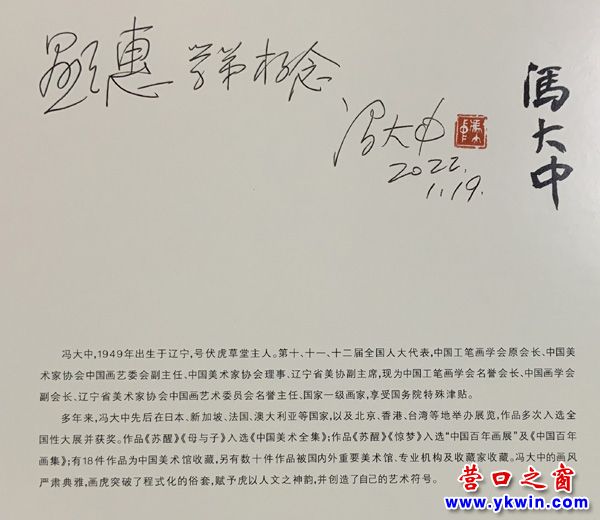 显惠 学弟相念
冯大中
2022.
1.19.
馮大中
冯大中,1949年出生于辽宁,号伏虎草堂主人。第十、十一、十二届全国人大代表,中国工笔画学会原会长、中国美
术家协会中国画艺委会副主任、中国美术家协会理事、辽宁省美协副主席,现为中国工笔画学会名誉会长、中国画学会
副会长、辽宁省美术家协会中国画艺术委员会名誉主任、国家一级画家,享受国务院特殊津贴。
多年来,冯大中先后在日本、新加坡、法国、澳大利亚等国家,以及北京、香港、台湾等地举办展览,作品多次入选全
国性大展并获奖。作品《苏醒》《母与子》入选《中国美术全集》;作品《苏醒》《惊梦》入选“中国百年画展”及《中国百年
画集》;有18件作品为中国美术馆收藏,另有数十件作品被国内外重要美术馆、专业机构及收藏家收藏。冯大中的画风
严肃典雅,画虎突破了程式化的俗套,赋予虎以人文之神韵,并创造了自己的艺术符号。
营口之窗
www.ykwin.com